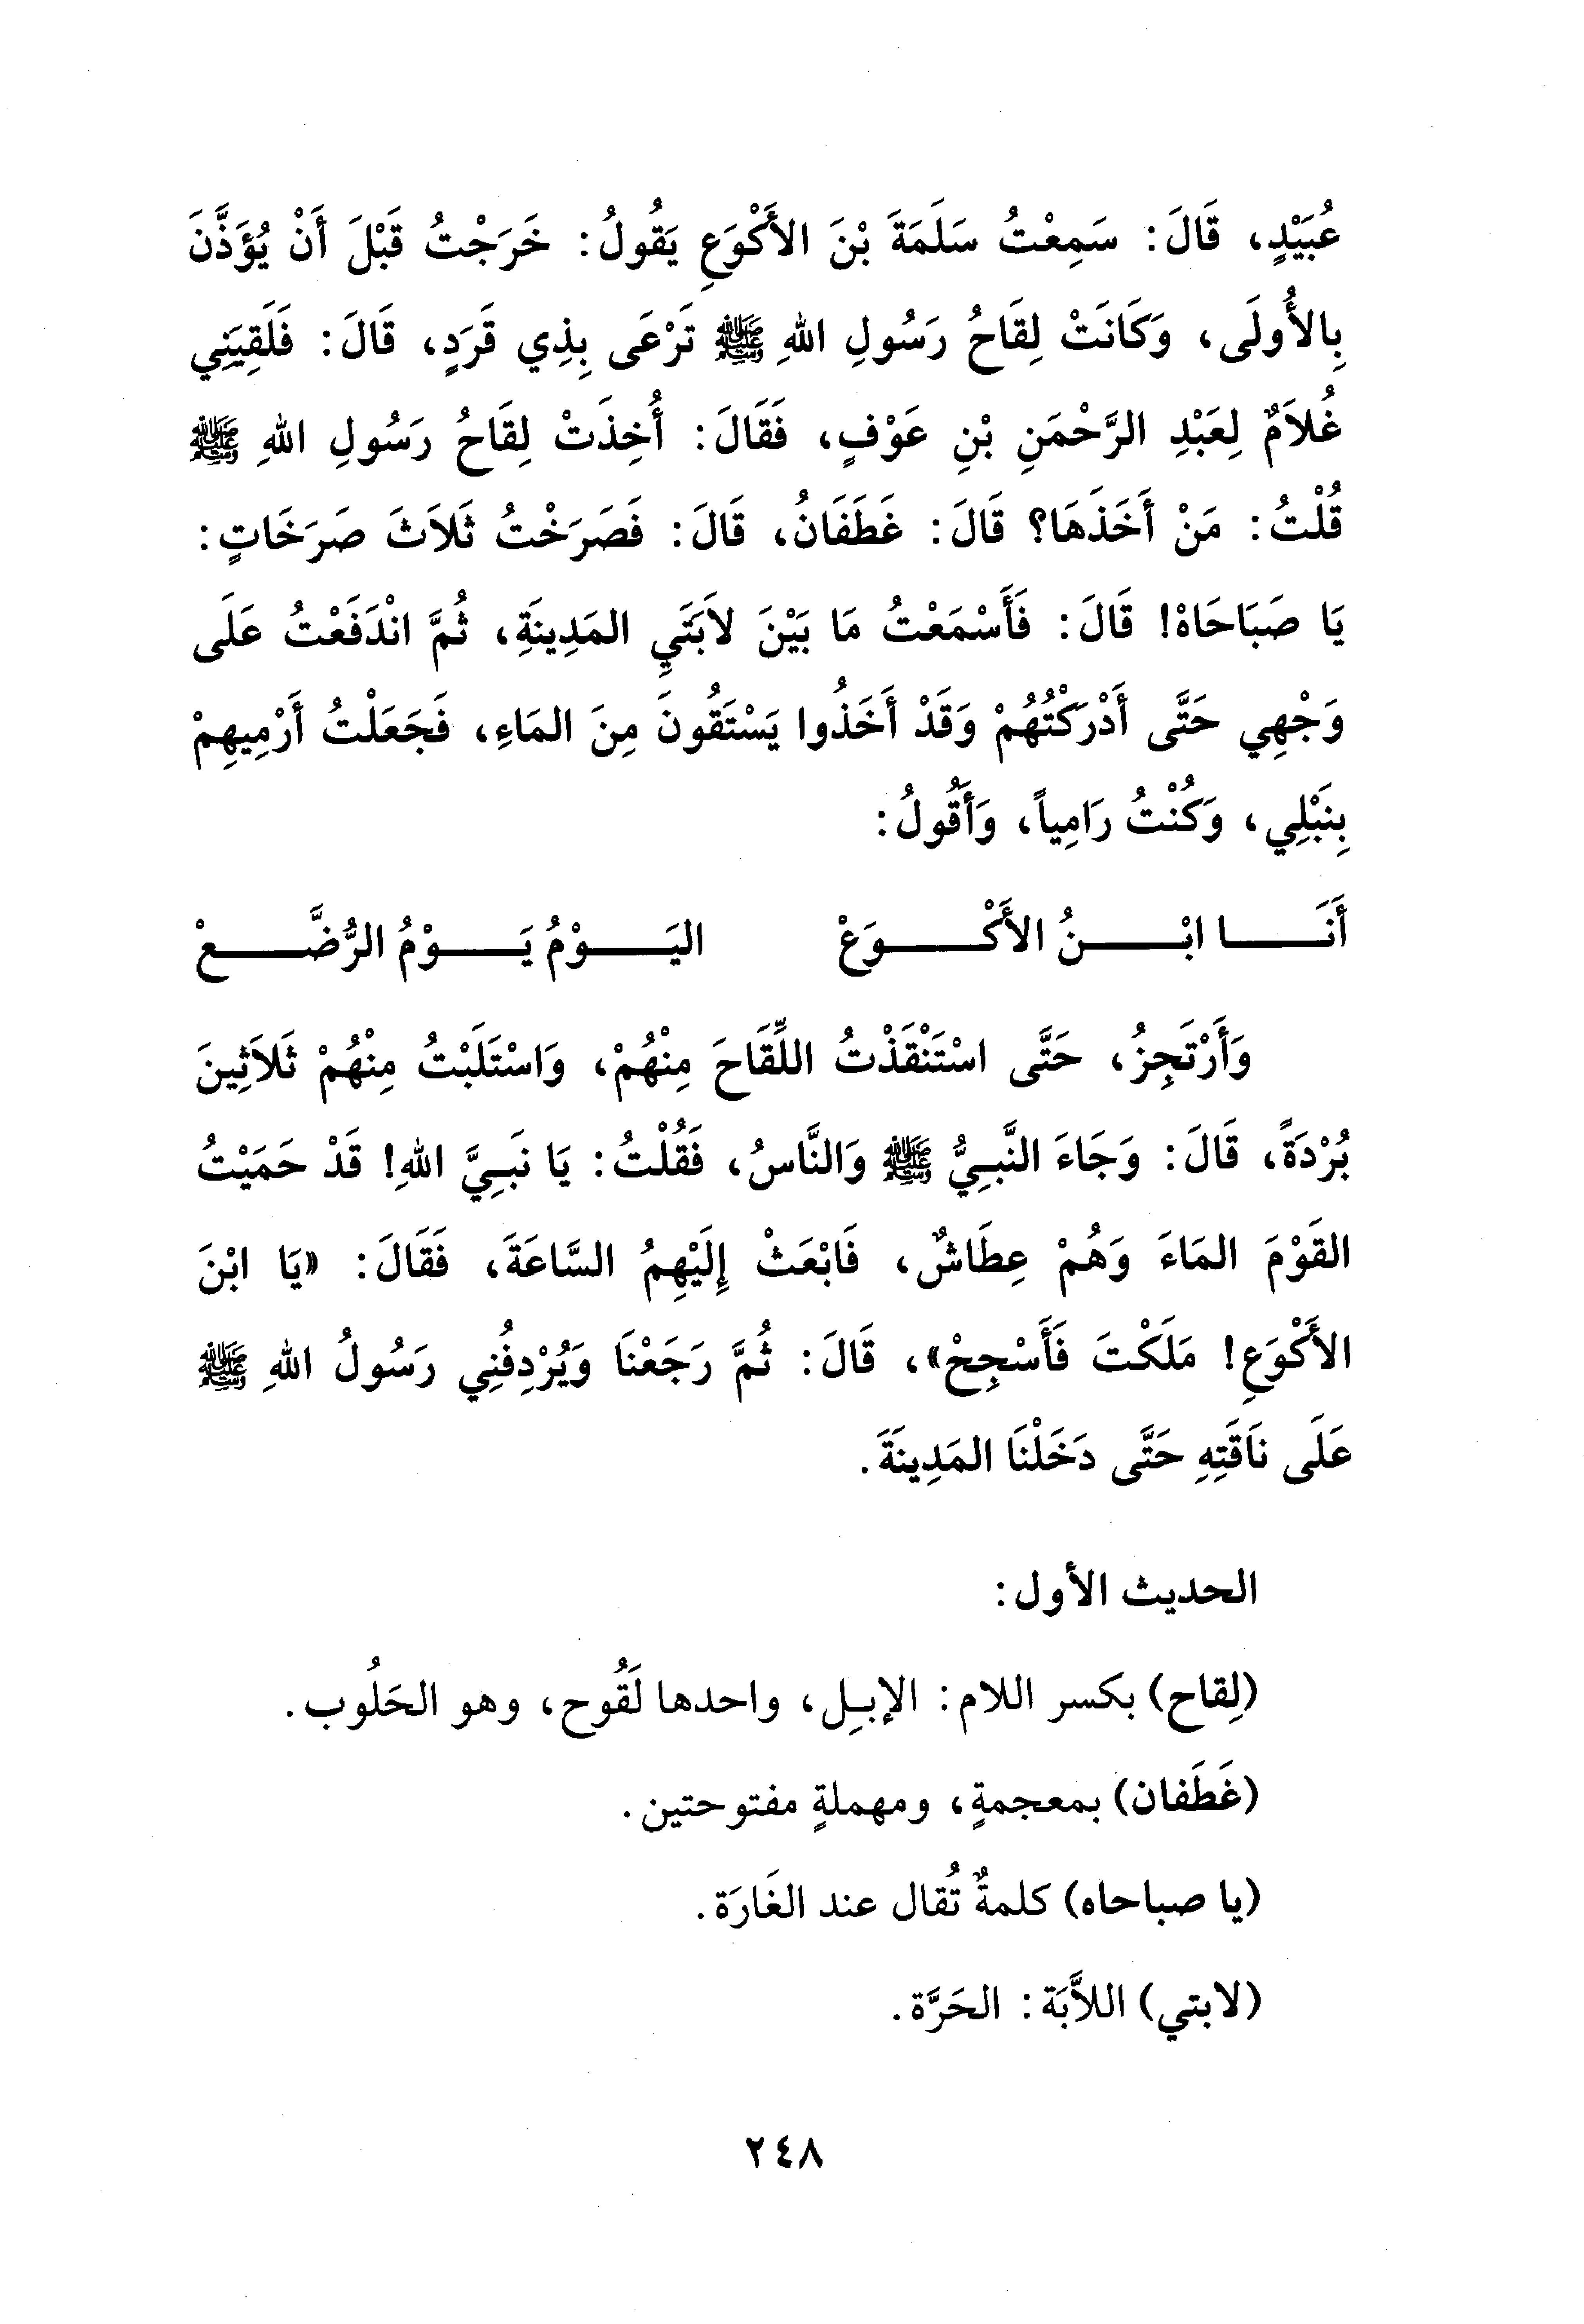 عُبَيْدٍ، قَالَ: سَمِعْتُ سَلَمَةَ بْنَ الأَكْوَعِ يَقُولُ: خَرَجْتُ قَبْلَ أَنْ يُؤَذَّنَ
بِالأُولَى، وَكَانَتْ لِقَاحُ رَسُولِ اللهِ ﷺ تَرْعَى بِذِي قَرَدٍ، قَالَ: فَلَقِيَنِي
غُلاَمٌ لِعَبْدِ الرَّحْمَنِ بْنِ عَوْفٍ، فَقَالَ: أُخِذَتْ لِقَاحُ رَسُولِ اللهِ ﷺ
قُلْتُ: مَنْ أَخَذَهَا؟ قَالَ: غَطَفَانُ، قَالَ: فَصَرَخْتُ ثَلاَثَ صَرَخَاتٍ:
يَا صَبَاحَاهْ! قَالَ: فَأَسْمَعْتُ مَا بَيْنَ لاَبَتَيِ المَدِينَةِ، ثُمَّ انْدَفَعْتُ عَلَى
وَجْهِي حَتَّى أَدْرَكْتُهُمْ وَقَدْ أَخَذُوا يَسْتَقُونَ مِنَ المَاءِ، فَجَعَلْتُ أَرْمِيهِمْ
بِنَبْلِي، وَكُنْتُ رَامِياً، وَأَقُولُ:
أَنَـــا ابْـــنُ الأَكْـــوَعْ اليَـــوْمُ يَـــوْمُ الرُّضَّـــعْ
وَأَرْتَجِزُ، حَتَّى اسْتَنْقَذْتُ اللِّقَاحَ مِنْهُمْ، وَاسْتَلَبْتُ مِنْهُمْ ثَلاَثِينَ
بُرْدَةً، قَالَ: وَجَاءَ النَّبِيُّ ﷺ وَالنَّاسُ، فَقُلْتُ: يَا نَبِيَّ اللهِ! قَدْ حَمَيْتُ
القَوْمَ المَاءَ وَهُمْ عِطَاشٌ، فَابْعَثْ إِلَيْهِمُ السَّاعَةَ، فَقَالَ: «يَا ابْنَ
الأَكْوَعِ! مَلَكْتَ فَأَسْجِحْ»، قَالَ: ثُمَّ رَجَعْنَا وَيُرْدِفُنِي رَسُولُ اللهِ ﷺ
عَلَى نَاقَتِهِ حَتَّى دَخَلْنَا المَدِينَةَ.
الحديث الأول:
(لِقاح) بكسر اللام: الإبِل، واحدها لَقُوح، وهو الحَلُوب.
(غَطَفان) بمعجمةٍ، ومهملةٍ مفتوحتين.
(يا صباحاه) كلمةٌ تُقال عند الغَارَة.
(لابتي) اللاَّبَة: الحَرَّة.
٢٤٨